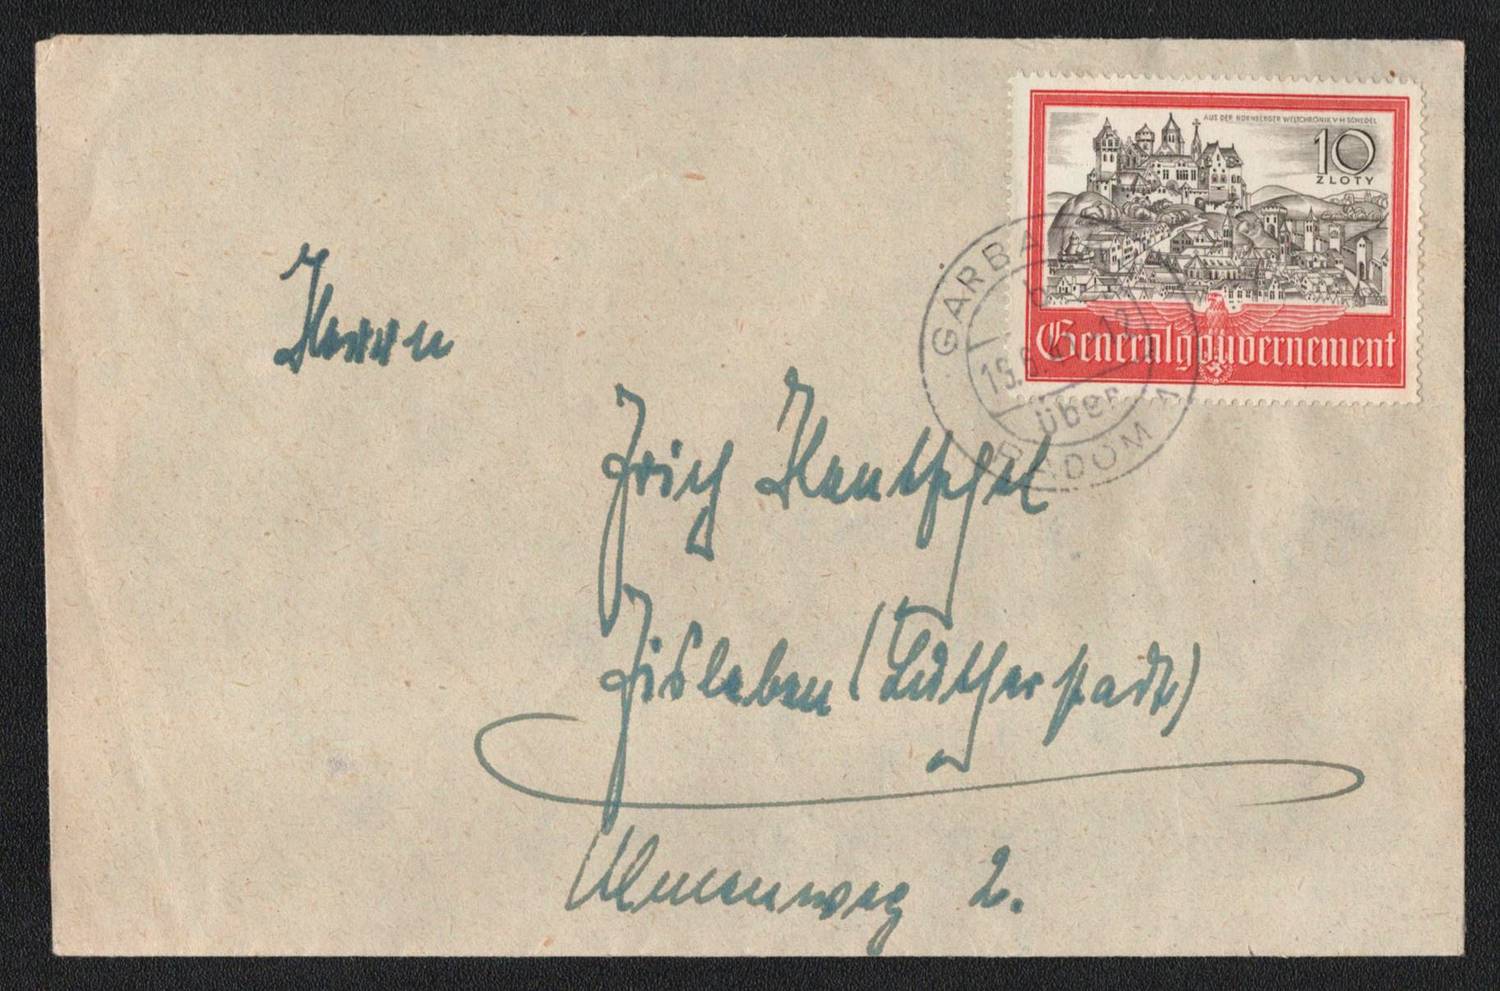 AUS DER NÜRNBERGER WELTCHRONIK V H SCHEDEL
10
ZLOTY
Generalgouvernement
GARBA
19.
17
über
RADOM
Herrn
Erich Hentschel
Eisleben (Lutherstadt)
Ulmenweg 2.